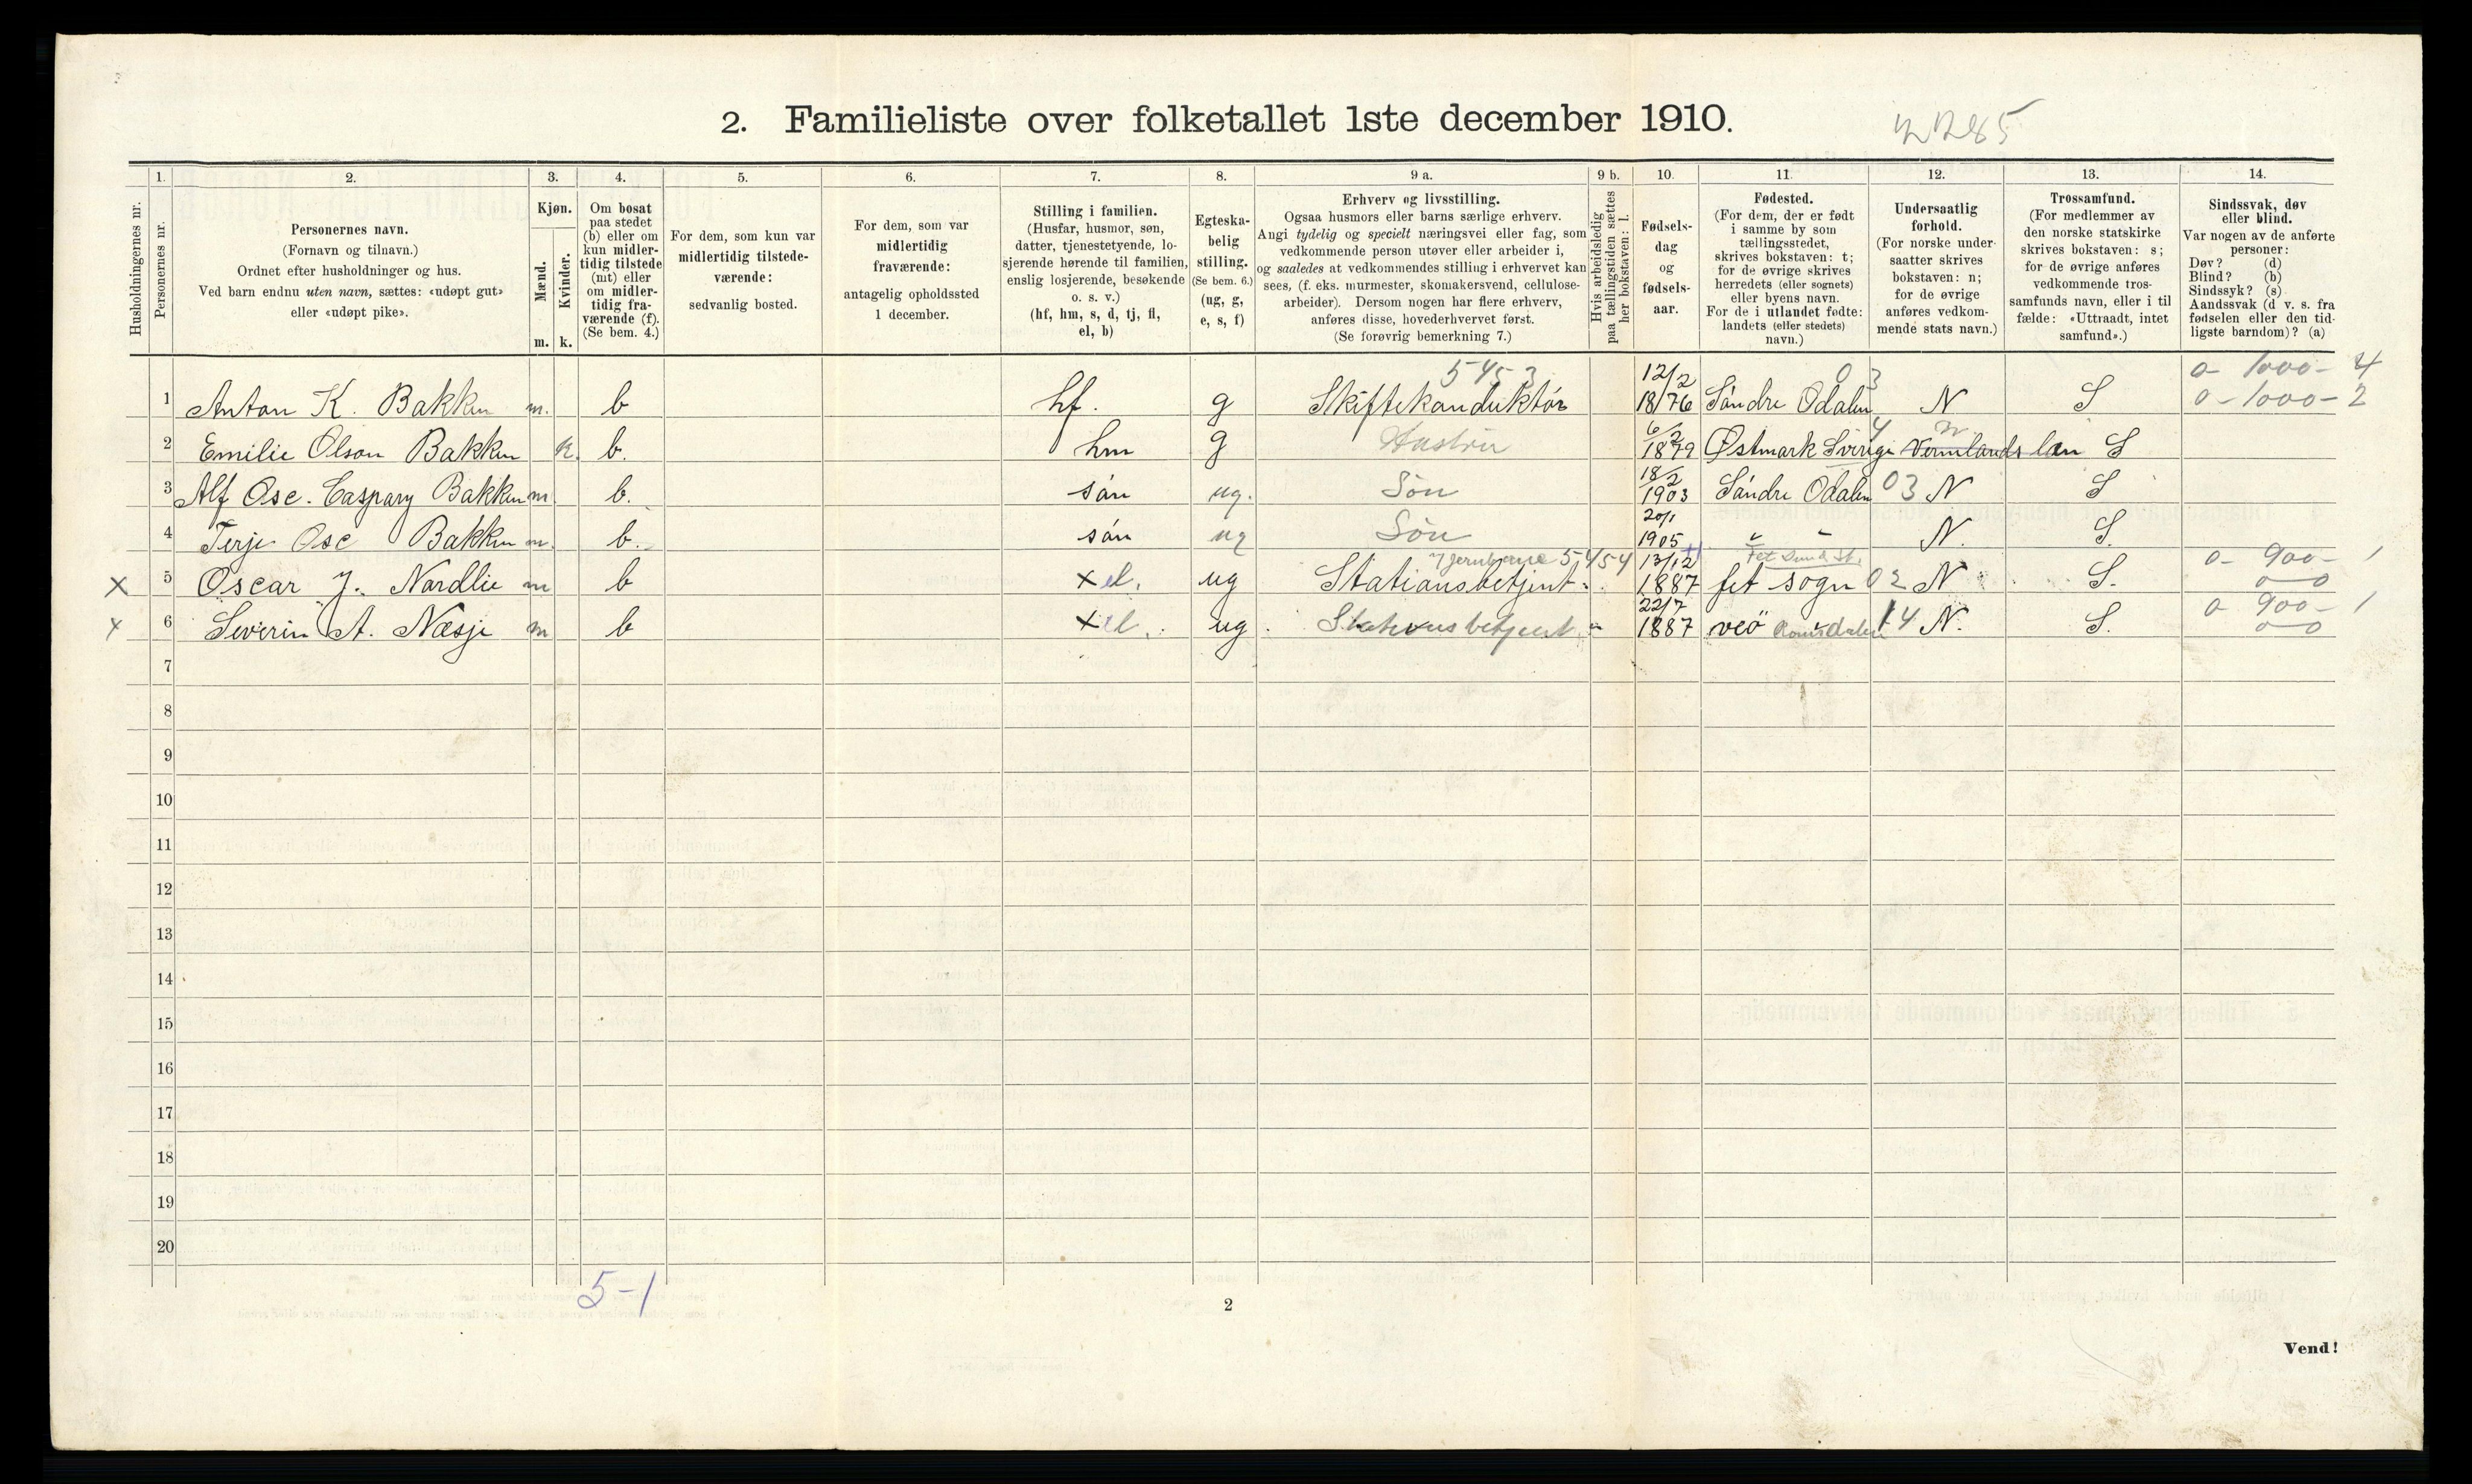 2. Familieliste over folketallet 1ste december 1910.
Husholdningernes nr.
1.
Personernes nr.
2.
Personernes navn.
(Fornavn og tilnavn.)
Ordnet efter husholdninger og hus.
Ved barn endnu uten navn, sættes: «udøpt gut»
eller «udøpt pike».
3.
Kjøn.
Mænd.
Kvinder.
m. k.
4.
Om bosat
paa stedet
(b) eller om
kun midler-
tidig tilstede
(mt) eller
om midler-
tidig fra-
værende (f).
(Se bem. 4.)
5.
For dem, som kun var
midlertidig tilstede-
værende:
sedvanlig bosted.
6.
For dem, som var
midlertidig
fraværende:
antagelig opholdssted
1 december.
7.
Stilling i familien.
(Husfar, husmor, søn,
datter, tjenestetyende, lo-
sjerende hørende til familien,
enslig losjerende, besøkende
o. s. v.)
(hf, hm, s, d, tj, fl,
el, b)
8.
Egteska-
belig
stilling.
(Se bem. 6.)
(ug, g,
e, s, f)
9 a.
Erhverv og livsstilling.
Ogsaa husmors eller barns særlige erhverv.
Angi tydelig og specielt næringsvei eller fag, som
vedkommende person utøver eller arbeider i,
og saaledes at vedkommendes stilling i erhvervet kan
sees, (f. eks. murmester, skomakersvend, cellulose-
arbeider). Dersom nogen har flere erhverv,
anføres disse, hovederhvervet først.
(Se forøvrig bemerkning 7.)
9 b.
Hvis arbeidsledig
paa tællingstiden sættes
her bokstaven: l.
10.
Fødsels-
dag
og
fødsels-
aar.
11.
Fødested.
(For dem, der er født
i samme by som
tællingsstedet,
skrives bokstaven: t;
for de øvrige skrives
herredets (eller sognets)
eller byens navn.
For de i utlandet fødte:
landets (eller stedets)
navn.)
12.
Undersaatlig
forhold.
(For norske under-
saatter skrives
bokstaven: n;
for de øvrige
anføres vedkom-
mende stats navn.)
13.
Trossamfund.
(For medlemmer av
den norske statskirke
skrives bokstaven: s;
for de øvrige anføres
vedkommende tros-
samfunds navn, eller i til
fælde: «Uttraadt, intet
samfund».)
14.
Sindssvak, døv
eller blind.
Var nogen av de anførte
personer:
Døv? (d)
Blind? (b)
Sindssyk? (s)
Aandssvak (d v. s. fra
fødselen eller den tid-
ligste barndom)? (a)
5453 12/2 03 0 - 1000 - 4
1 Anton K. Bakken m. b hf. g Skiftekonduktör 18/76 Söndre Odalen N S 0 - 1000 - 2
2 Emilie Olson Bakken k. b. hm g Hustru 6/2 1879 Østmark Sverige Vermlands län S
3 Alf Osc. Caspary Bakken m. b. sön ug. Søn 18/2 1903 Söndre Odalen 03 N S
4 Terje Osc Bakken m. b. sön ug Søn 20/1 1905 " " N. S.
jernbane 5454 13/12 0 - 900 - 1
X 5 Oscar J. Nordlie m b x el. ug Stationsbetjent 1887 fet sogn 02 N S. 0 0
22/7 0 900 - 1
x 6 Severin A. Næsje m b x el. ug Stationsbetjent " 1887 veö Romsdalen 14 N. S. 0 0
7
8
9
10
11
12
13
14
15
16
17
18
19
20
5-1
2
Vend!